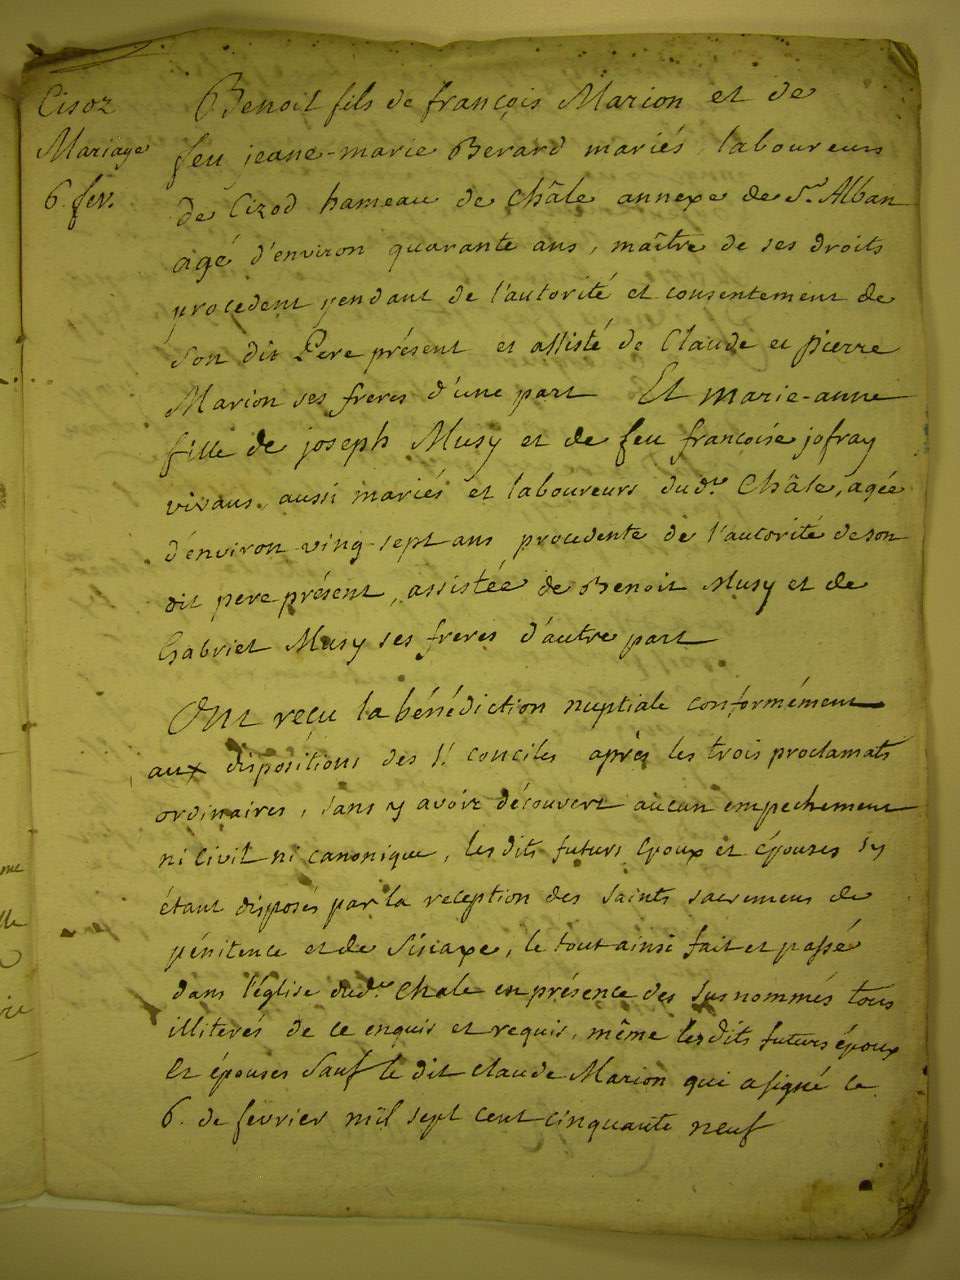 Cisoz
Mariage
6. fev.
Benoit fils de françois Marion et de
feu jeane-marie Berard mariés laboureurs
de Cizod hameau de Châle annexe de St. Alban
agé d'environ quarante ans, maître de ses droits
procedent pendant de l'autorité et consentement de
son dit Pere présent et assisté de Claude et pierre
Marion ses freres d'une part Et marie-anne
fille de joseph Musy et de feu françoise jofray
vivans aussi mariés et laboureurs dudt. Châle, agée
d'environ ving-sept ans procedente de l'autorité de son
dit pere présent, assistée de Benoit Musy et de
Gabriel Musy ses freres d'autre part
Ont reçu la bénédiction nuptiale conformément
aux dispositions des St. conciles après les trois proclamats
ordinaires, sans y avoir découvert aucun empechement
ni civil ni canonique, les dits futurs epoux et épouses sy
étant disposés par la reception des saints sacremens de
pénitence et de, le tout ainsi fait et passé
dans l'église dudt. Chale en présence des susnommés tous
illiterés de ce enquis et requis, même les dits futurs époux
et épouses sauf le dit Claude Marion qui a signé ce
6. de fevrier mil sept cent cinquante neuf